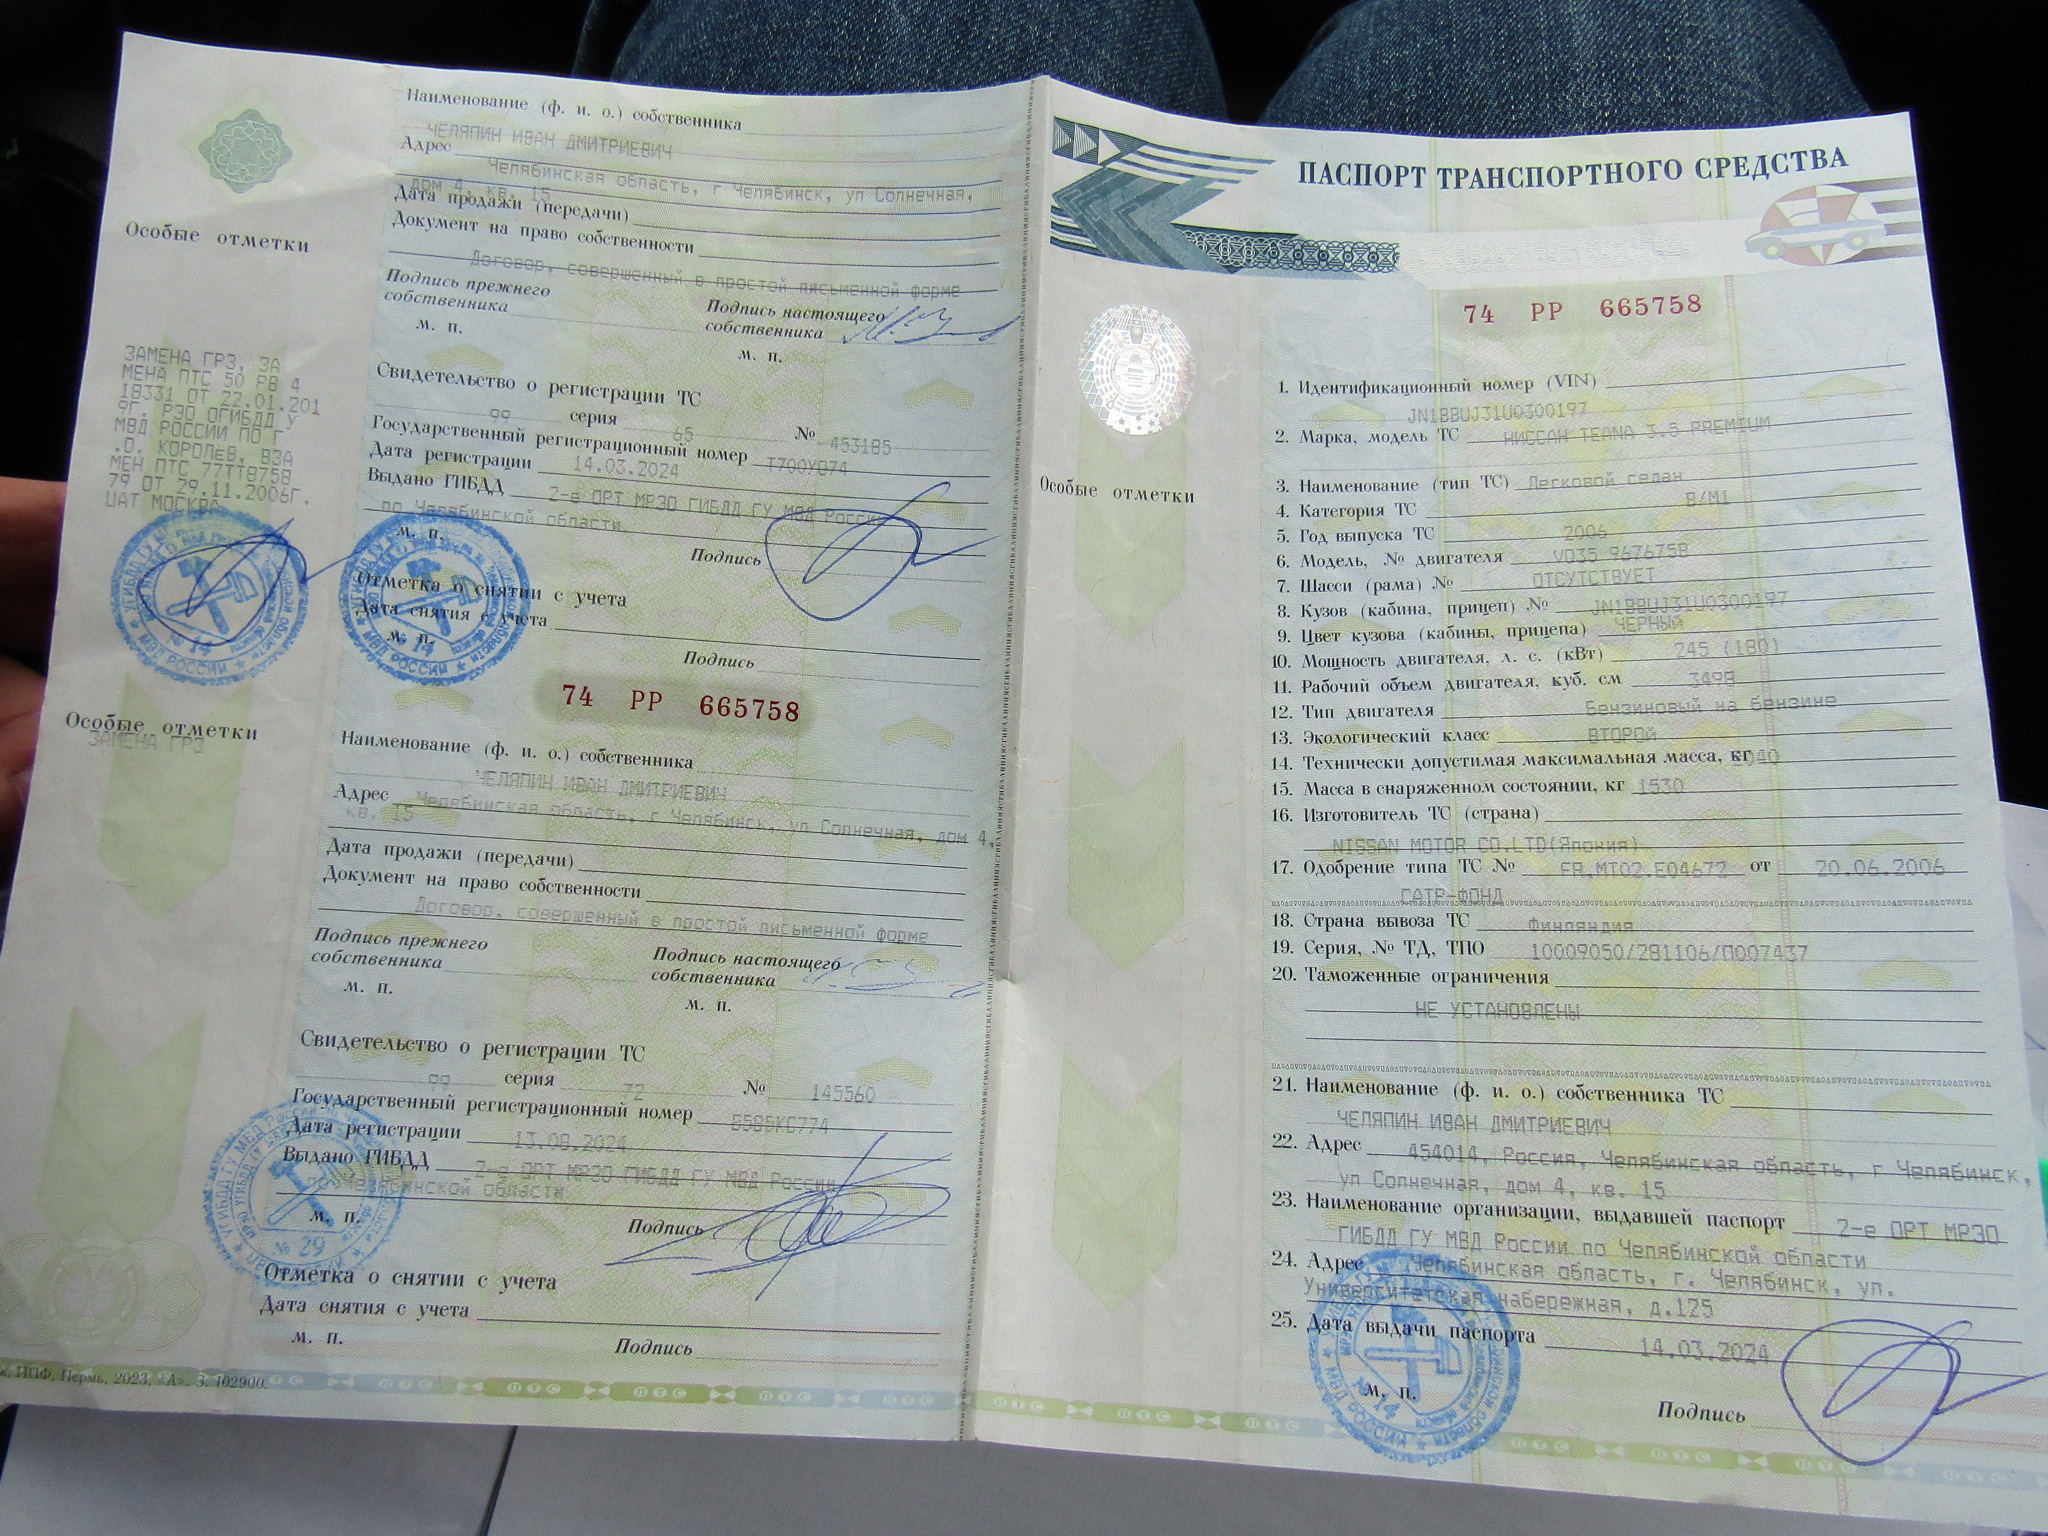 Особые отметки
ЗАМЕНА ГРЗ, ЗА
МЕНА ПТС 50 РВ 4
18331 ОТ 22.01.201
9г. РЭО ОГИБДД У
МВД РОССИИ ПО Г
.О. КОРОЛеВ, ВЗА
МЕН ПТС 77ТТ8758
79 ОТ 29.11.2006Г.
ЦАТ МОСКВА
№ 14
МВД РОССИИ
Особые отметки
ЗАМЕНА ГРЗ
Наименование (ф. и. о.) собственника
ЧЕЛЯПИН ИВАН ДМИТРИЕВИЧ
Адрес
Челябинская область, г Челябинск, ул Солнечная,
дом 4, кв. 15
Дата продажи (передачи)
Документ на право собственности
Договор, совершенный в простой письменной форме
Подпись прежнего
собственника
Подпись настоящего
собственника
м. п.
м. п.
Свидетельство о регистрации ТС
99 серия 65 № 453185
Государственный регистрационный номер Т700УО74
Дата регистрации 14.03.2024
Выдано ГИБДД 2-е ОРТ МРЭО ГИБДД ГУ МВД России
по Челябинской области
м. п.
Подпись
Отметка о снятии с учета
Дата снятия с учета
м. п.
№ 14
МВД РОССИИ
Подпись
74 РР 665758
Наименование (ф. и. о.) собственника
ЧЕЛЯПИН ИВАН ДМИТРИЕВИЧ
Адрес Челябинская область, г Челябинск, ул Солнечная, дом 4,
кв. 15
Дата продажи (передачи)
Документ на право собственности
Договор, совершенный в простой письменной форме
Подпись прежнего
собственника
Подпись настоящего
собственника
м. п.
м. п.
Свидетельство о регистрации ТС
99 серия 72 № 145560
Государственный регистрационный номер В585КС774
Дата регистрации 13.08.2024
Выдано ГИБДД 2-е ОРТ МРЭО ГИБДД ГУ МВД России
по Челябинской области
м. п.
Подпись
№ 29
Отметка о снятии с учета
Дата снятия с учета
м. п.
Подпись
ИПФ, Пермь, 2023, «А». З. 102900.
ПАСПОРТ ТРАНСПОРТНОГО СРЕДСТВА
74 РР 665758
Особые отметки
1. Идентификационный номер (VIN)
JN1BBUJ31U0300197
2. Марка, модель ТС НИССАН TEANA 3.5 PREMIUM
3. Наименование (тип ТС) Легковой седан
4. Категория ТС B/M1
5. Год выпуска ТС 2006
6. Модель, № двигателя VQ35 967675B
7. Шасси (рама) № ОТСУТСТВУЕТ
8. Кузов (кабина, прицеп) № JN1BBUJ31U0300197
9. Цвет кузова (кабины, прицепа) ЧЕРНЫЙ
10. Мощность двигателя, л. с. (кВт) 245 (180)
11. Рабочий объем двигателя, куб. см 3498
12. Тип двигателя Бензиновый на бензине
13. Экологический класс ВТОРОЙ
14. Технически допустимая максимальная масса, кг 2040
15. Масса в снаряженном состоянии, кг 1530
16. Изготовитель ТС (страна)
NISSAN MOTOR CO.LTD(Япония)
17. Одобрение типа ТС № FR.MT02.E04672 от 20.06.2006
САТР-ФОНД
18. Страна вывоза ТС Финляндия
19. Серия, № ТД, ТПО 10009050/281106/П007437
20. Таможенные ограничения
НЕ УСТАНОВЛЕНЫ
21. Наименование (ф. и. о.) собственника ТС
ЧЕЛЯПИН ИВАН ДМИТРИЕВИЧ
22. Адрес 454014, Россия, Челябинская область, г Челябинск,
ул Солнечная, дом 4, кв. 15
23. Наименование организации, выдавшей паспорт 2-е ОРТ МРЭО
ГИБДД ГУ МВД России по Челябинской области
24. Адрес Челябинская область, г. Челябинск, ул.
Университетская набережная, д.125
25. Дата выдачи паспорта 14.03.2024
м. п.
№ 14
МВД РОССИИ
Подпись